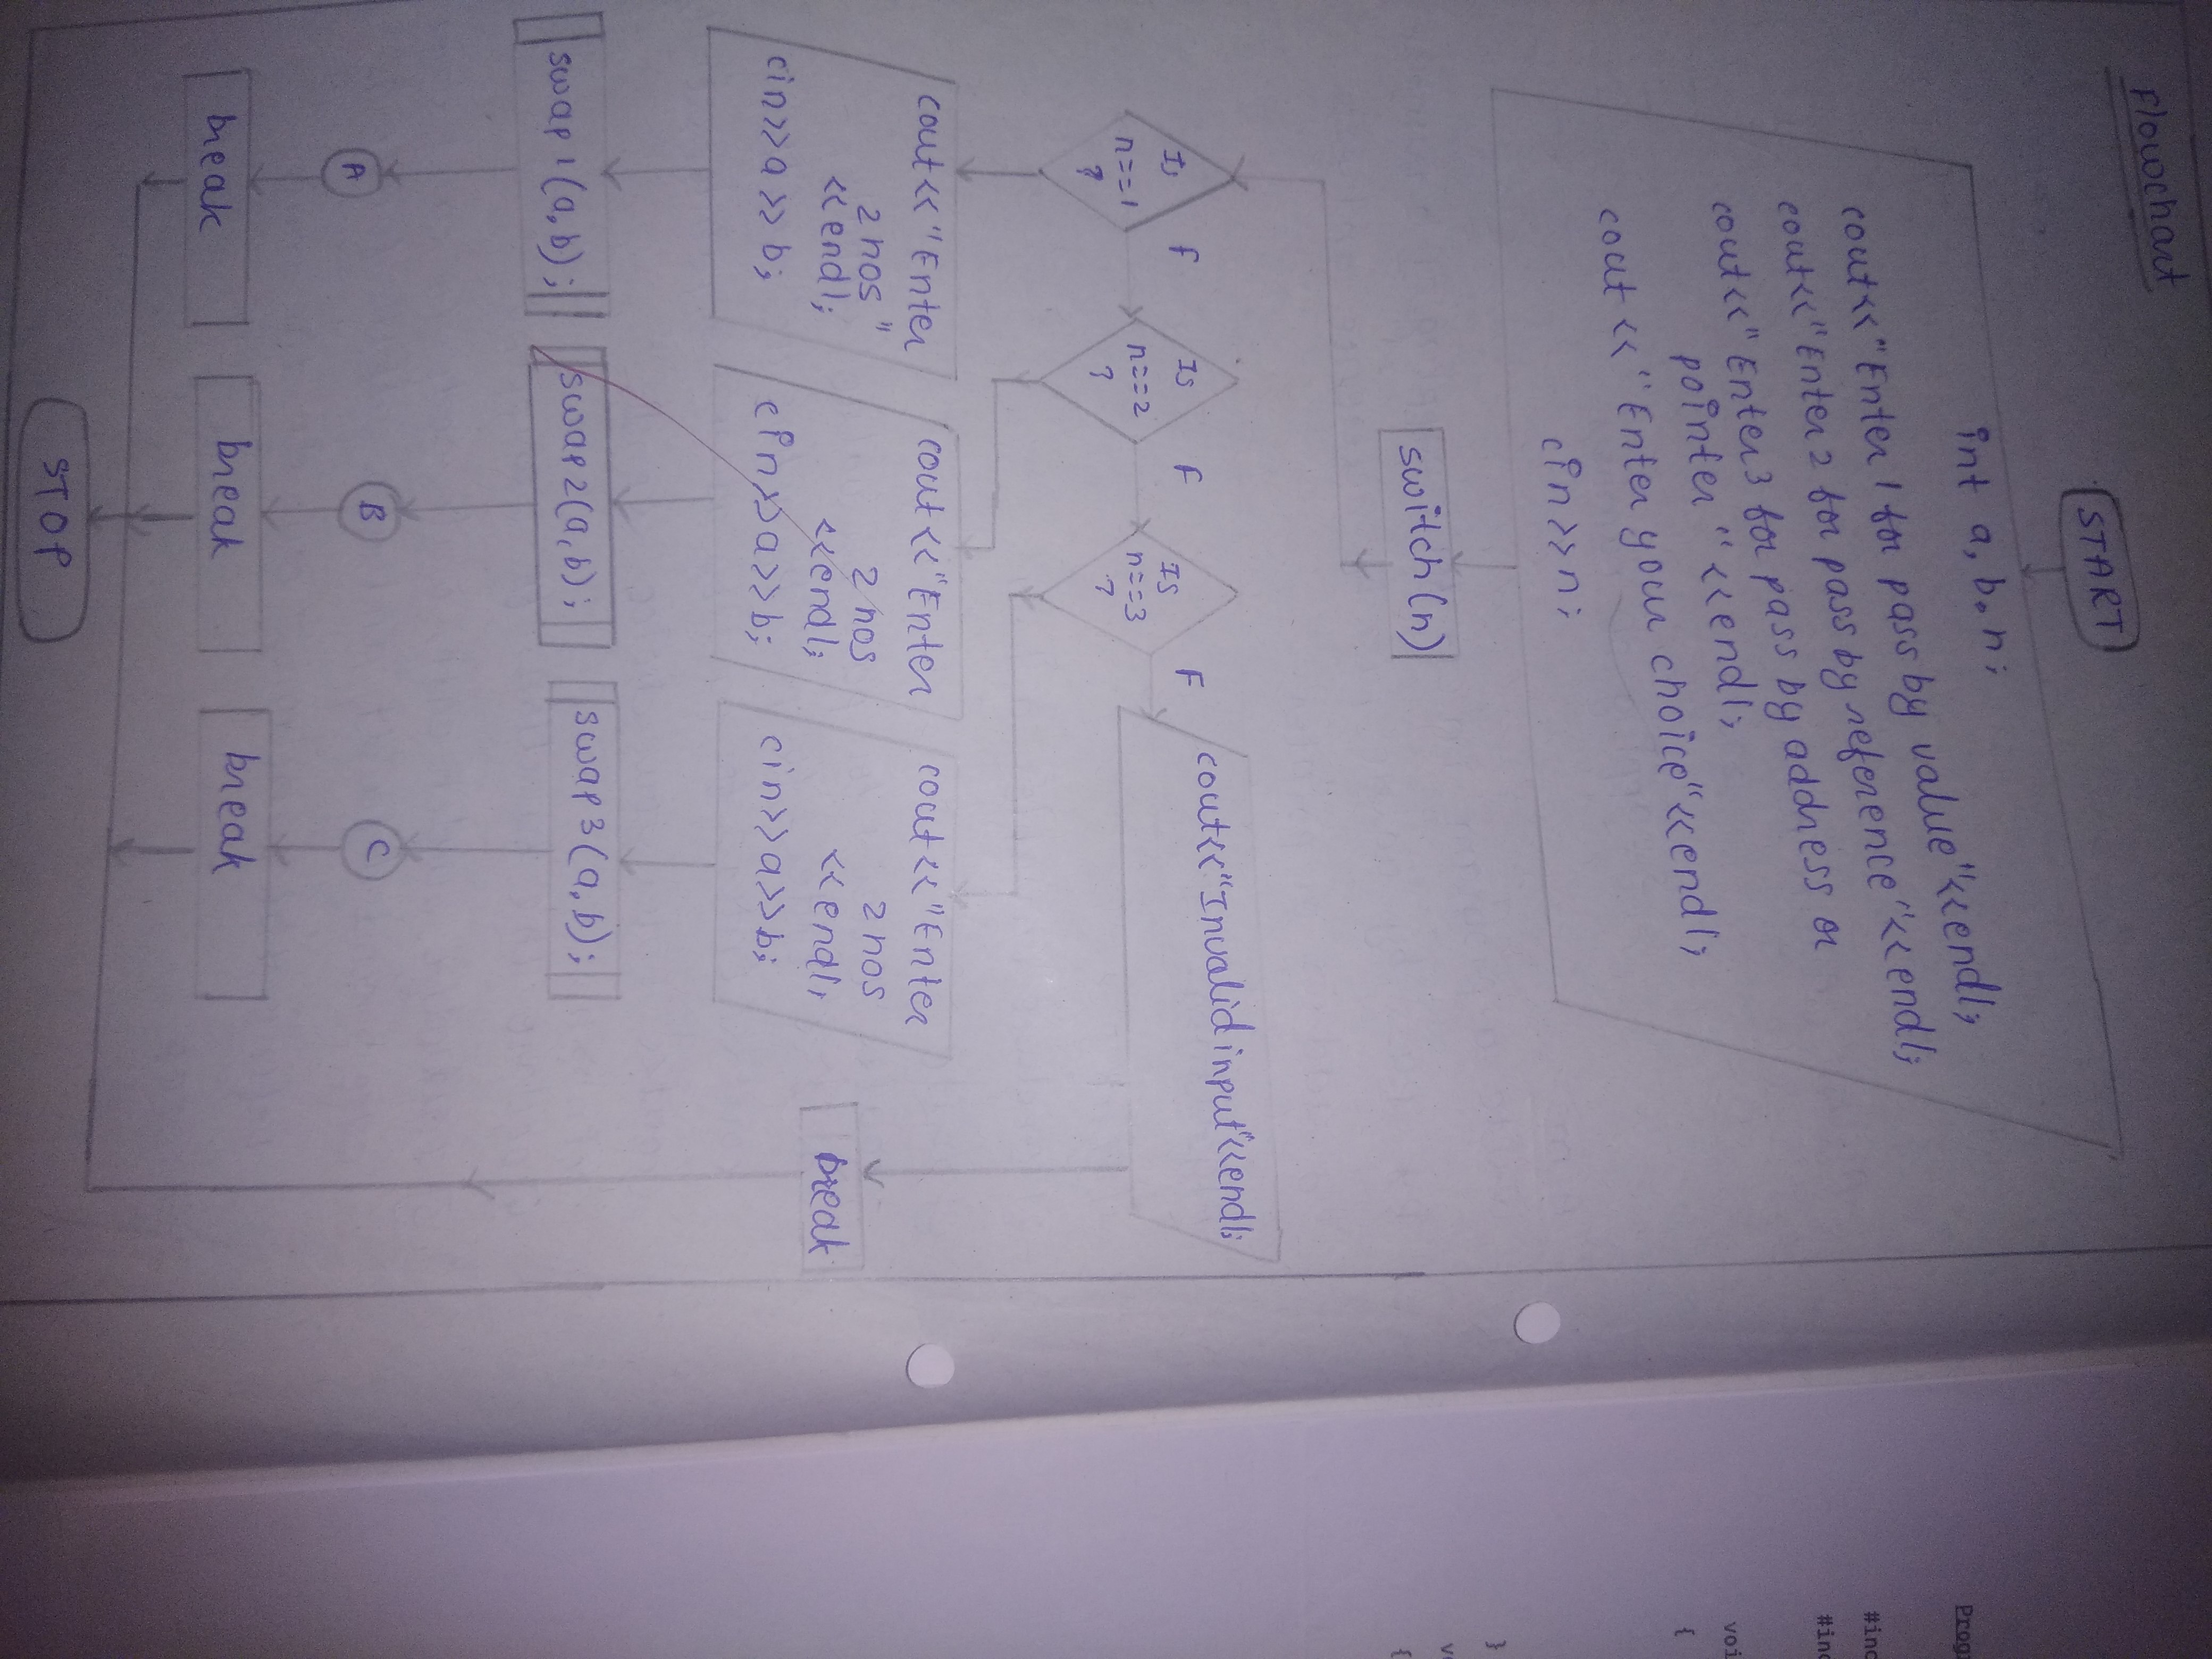 Flowchart
START
int a, b, n;
cout<<"Enter 1 for pass by value"<<endl;
cout<<"Enter 2 for pass by reference"<<endl;
cout<<"Enter 3 for pass by address or
pointer"<<endl;
cout<<"Enter your choice"<<endl;
cin>>n;
switch(n)
Is
n==1
?
F
Is
n==2
?
F
IS
n==3
?
F
cout<<"Invalid input"<<endl;
cout<<"Enter
2 nos"
<<endl;
cin>>a>>b;
cout<<"Enter
2 nos
<<endl;
cin>>a>>b;
cout<<"Enter
2 nos
<<endl;
cin>>a>>b;
break
swap1(a,b);
swap2(a,b);
swap3(a,b);
A
B
C
break
break
break
STOP
#inc
#inc
voi
{
}
{